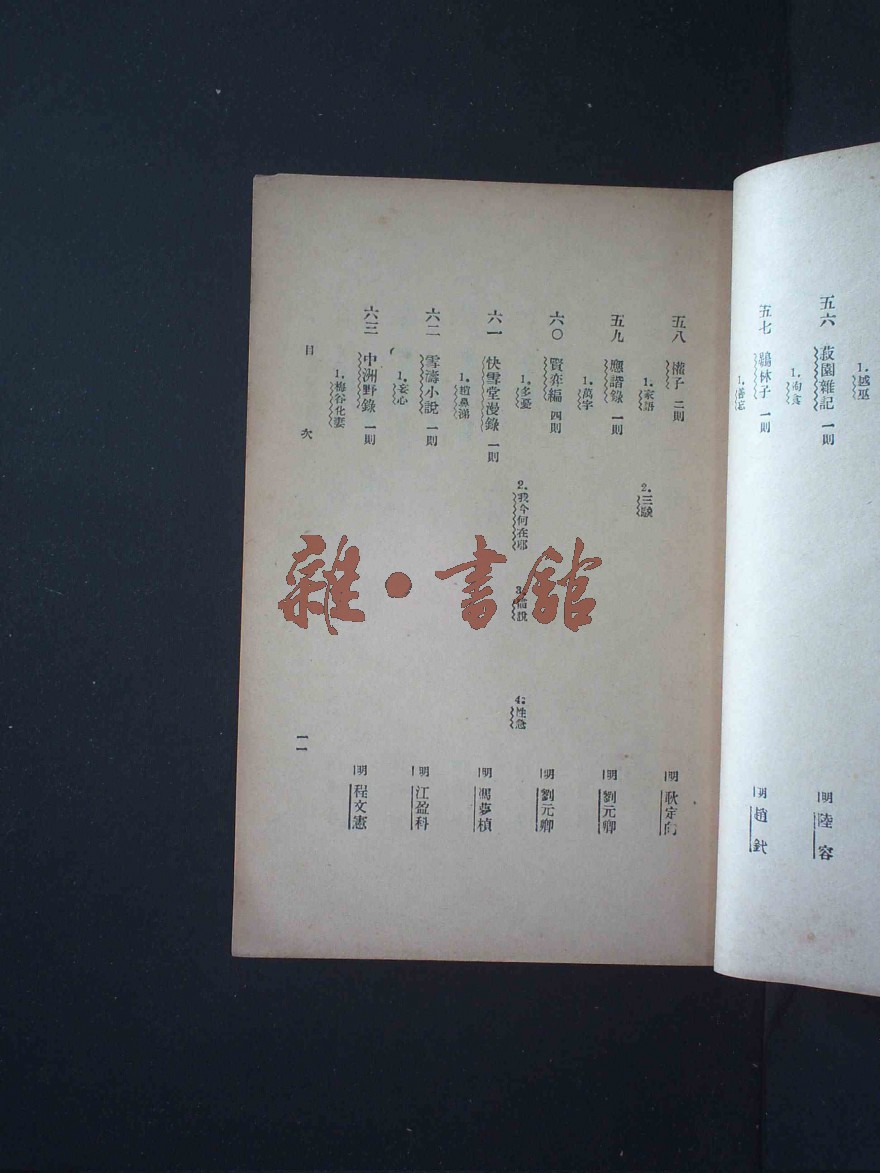 1.越巫
五六 菽園雜記 一則 明 陸容
五七 鷃林子 一則 明 趙釴
1.善忘
五八 權子 二則 明 耿定向
1.家語 2.三駿
五九 應諧錄 一則 明 劉元卿
1.萬字
六〇 賢弈編 四則 明 劉元卿
1.多憂 2.我今何在耶 3.猫說 4.性急
六一 快雪堂漫錄 一則 明 馮夢楨
1.趙鼻涕
六二 雪濤小說 一則 明 江盈科
1.妄心
六三 中洲野錄 一則 明 程文憲
1.梅谷化妻
目次 一一
雜·書館